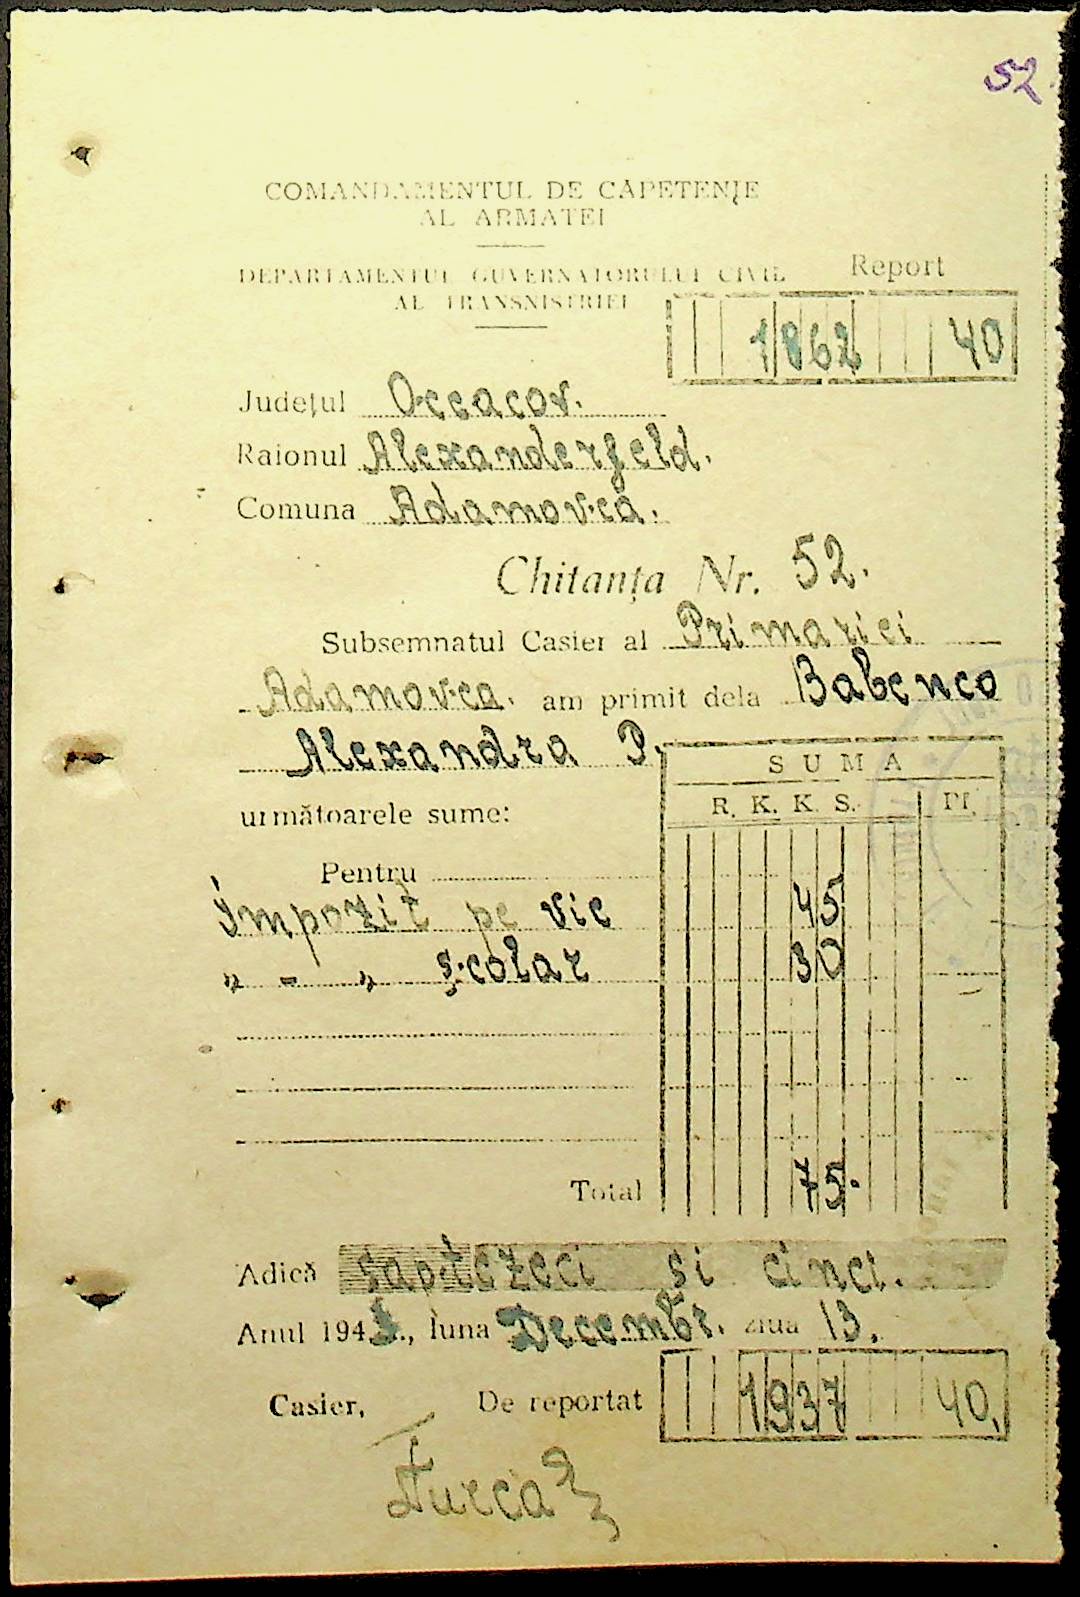 52
COMANDAMENTUL DE CĂPETENIE
AL ARMATEI
DEPARTAMENTUL GUVERNATORULUI CIVIL
AL TRANSNISTRIEI
Report
1862 40
Județul Oceacov.
Raionul Alexanderfeld.
Comuna Adamovca.
Chitanța Nr. 52.
Subsemnatul Casier al Primariei
Adamovca. am primit dela Babenco
Alexandra P.
SUMA
R. K. K. S. Pf.
următoarele sume:
Pentru
Impozit pe vie 45
" - " școlar 30
Total 75.
Adică șaptezeci si cinci.
Anul 194, luna Decembr. ziua 13.
Casier, De reportat 1937 40,